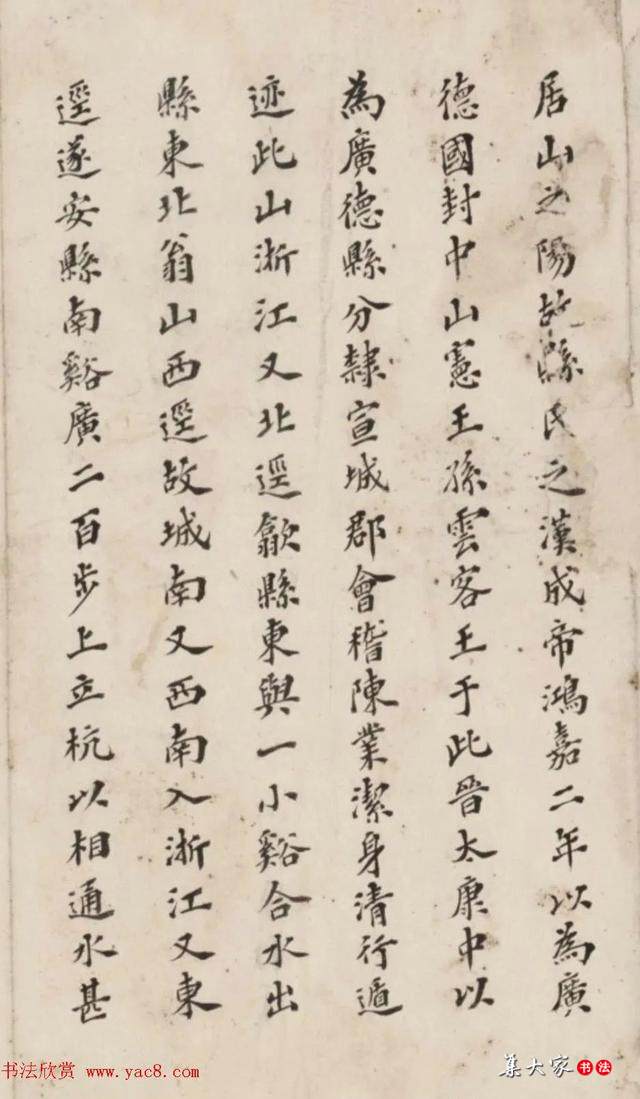 居山之陽故縣氏之漢成帝鴻嘉二年以為廣
德國封中山憲王孫雲客王于此晉太康中以
為廣德縣分隸宣城郡會稽陳業潔身清行遁
迹此山浙江又北逕歙縣東與一小谿合水出
縣東北翁山西逕故城南又西南入浙江又東
逕遂安縣南谿廣二百步上立杭以相通水甚
书法欣赏 www.yac8.com
集大家书法